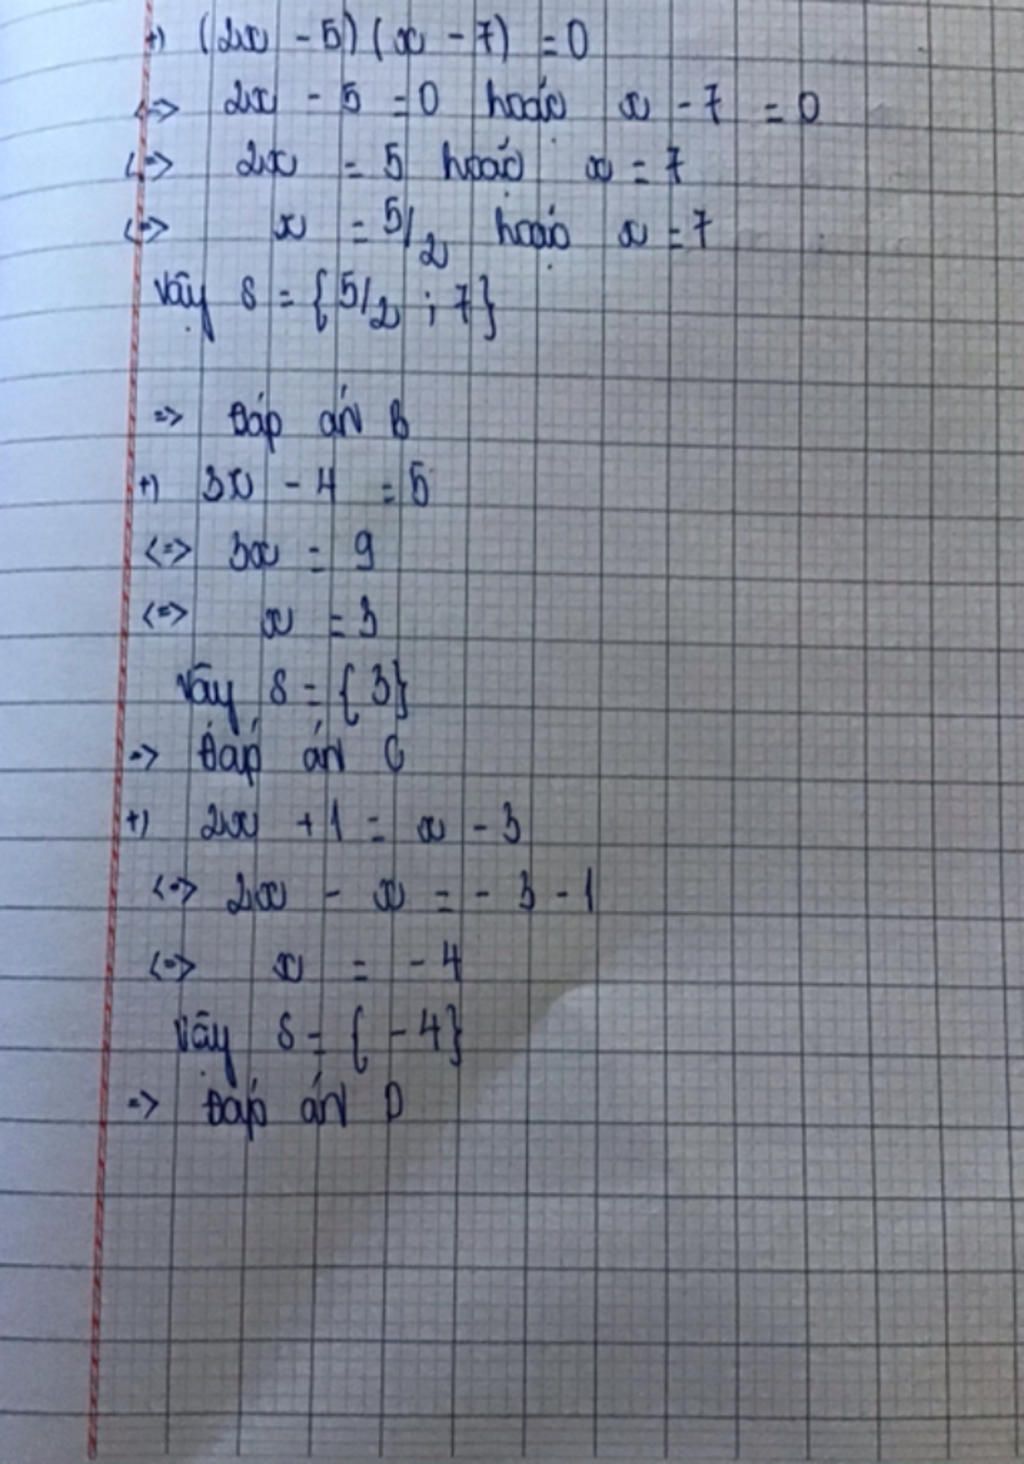 +) (2x - 5) (x - 7) = 0
<=> 2x - 5 = 0 hoặc x - 7 = 0
<=> 2x = 5 hoặc x = 7
<=> x = 5/2 hoặc x = 7
Vậy S = {5/2 ; 7}
=> Đáp án B
+) 3x - 4 = 5
<=> 3x = 9
<=> x = 3
Vậy S = {3}
=> Đáp án C
+) 2x + 1 = x - 3
<=> 2x - x = - 3 - 1
<=> x = - 4
Vậy S = { - 4}
=> Đáp án D